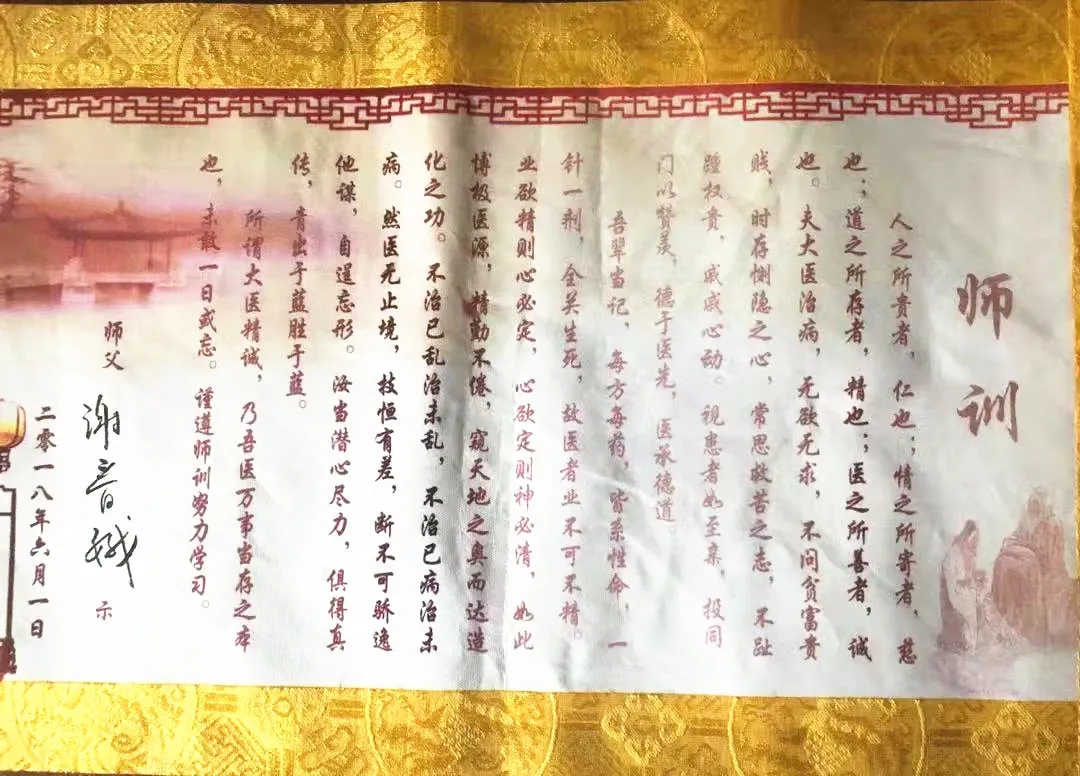 师训
人之所贵者，仁也；情之所寄者，慈
也；道之所存者，精也；医之所善者，诚
也。夫大医治病，无欲无求，不问贫富贵
贱，时存恻隐之心，常思救苦之志，不趾
踵权贵，戚戚心动。视患者如至亲，投同
门以赞美，德于医先，医承德道。
吾辈当记，每方每药，皆系性命，一
针一剂，全关生死，故医者业不可不精。
业欲精则心必定，心欲定则神必清，如此
博极医源，精勤不倦，窥天地之奥而达造
化之功。不治已乱治未乱，不治已病治未
病。然医无止境，技恒有差，断不可骄逸
他谋，自逞忘形。汝当潜心尽力，俱得真
传，青出于蓝胜于蓝。
所谓大医精诚，乃吾医万事当存之本
也，未敢一日或忘。谨遵师训努力学习。
师父 谢 示
二零一八年六月一日